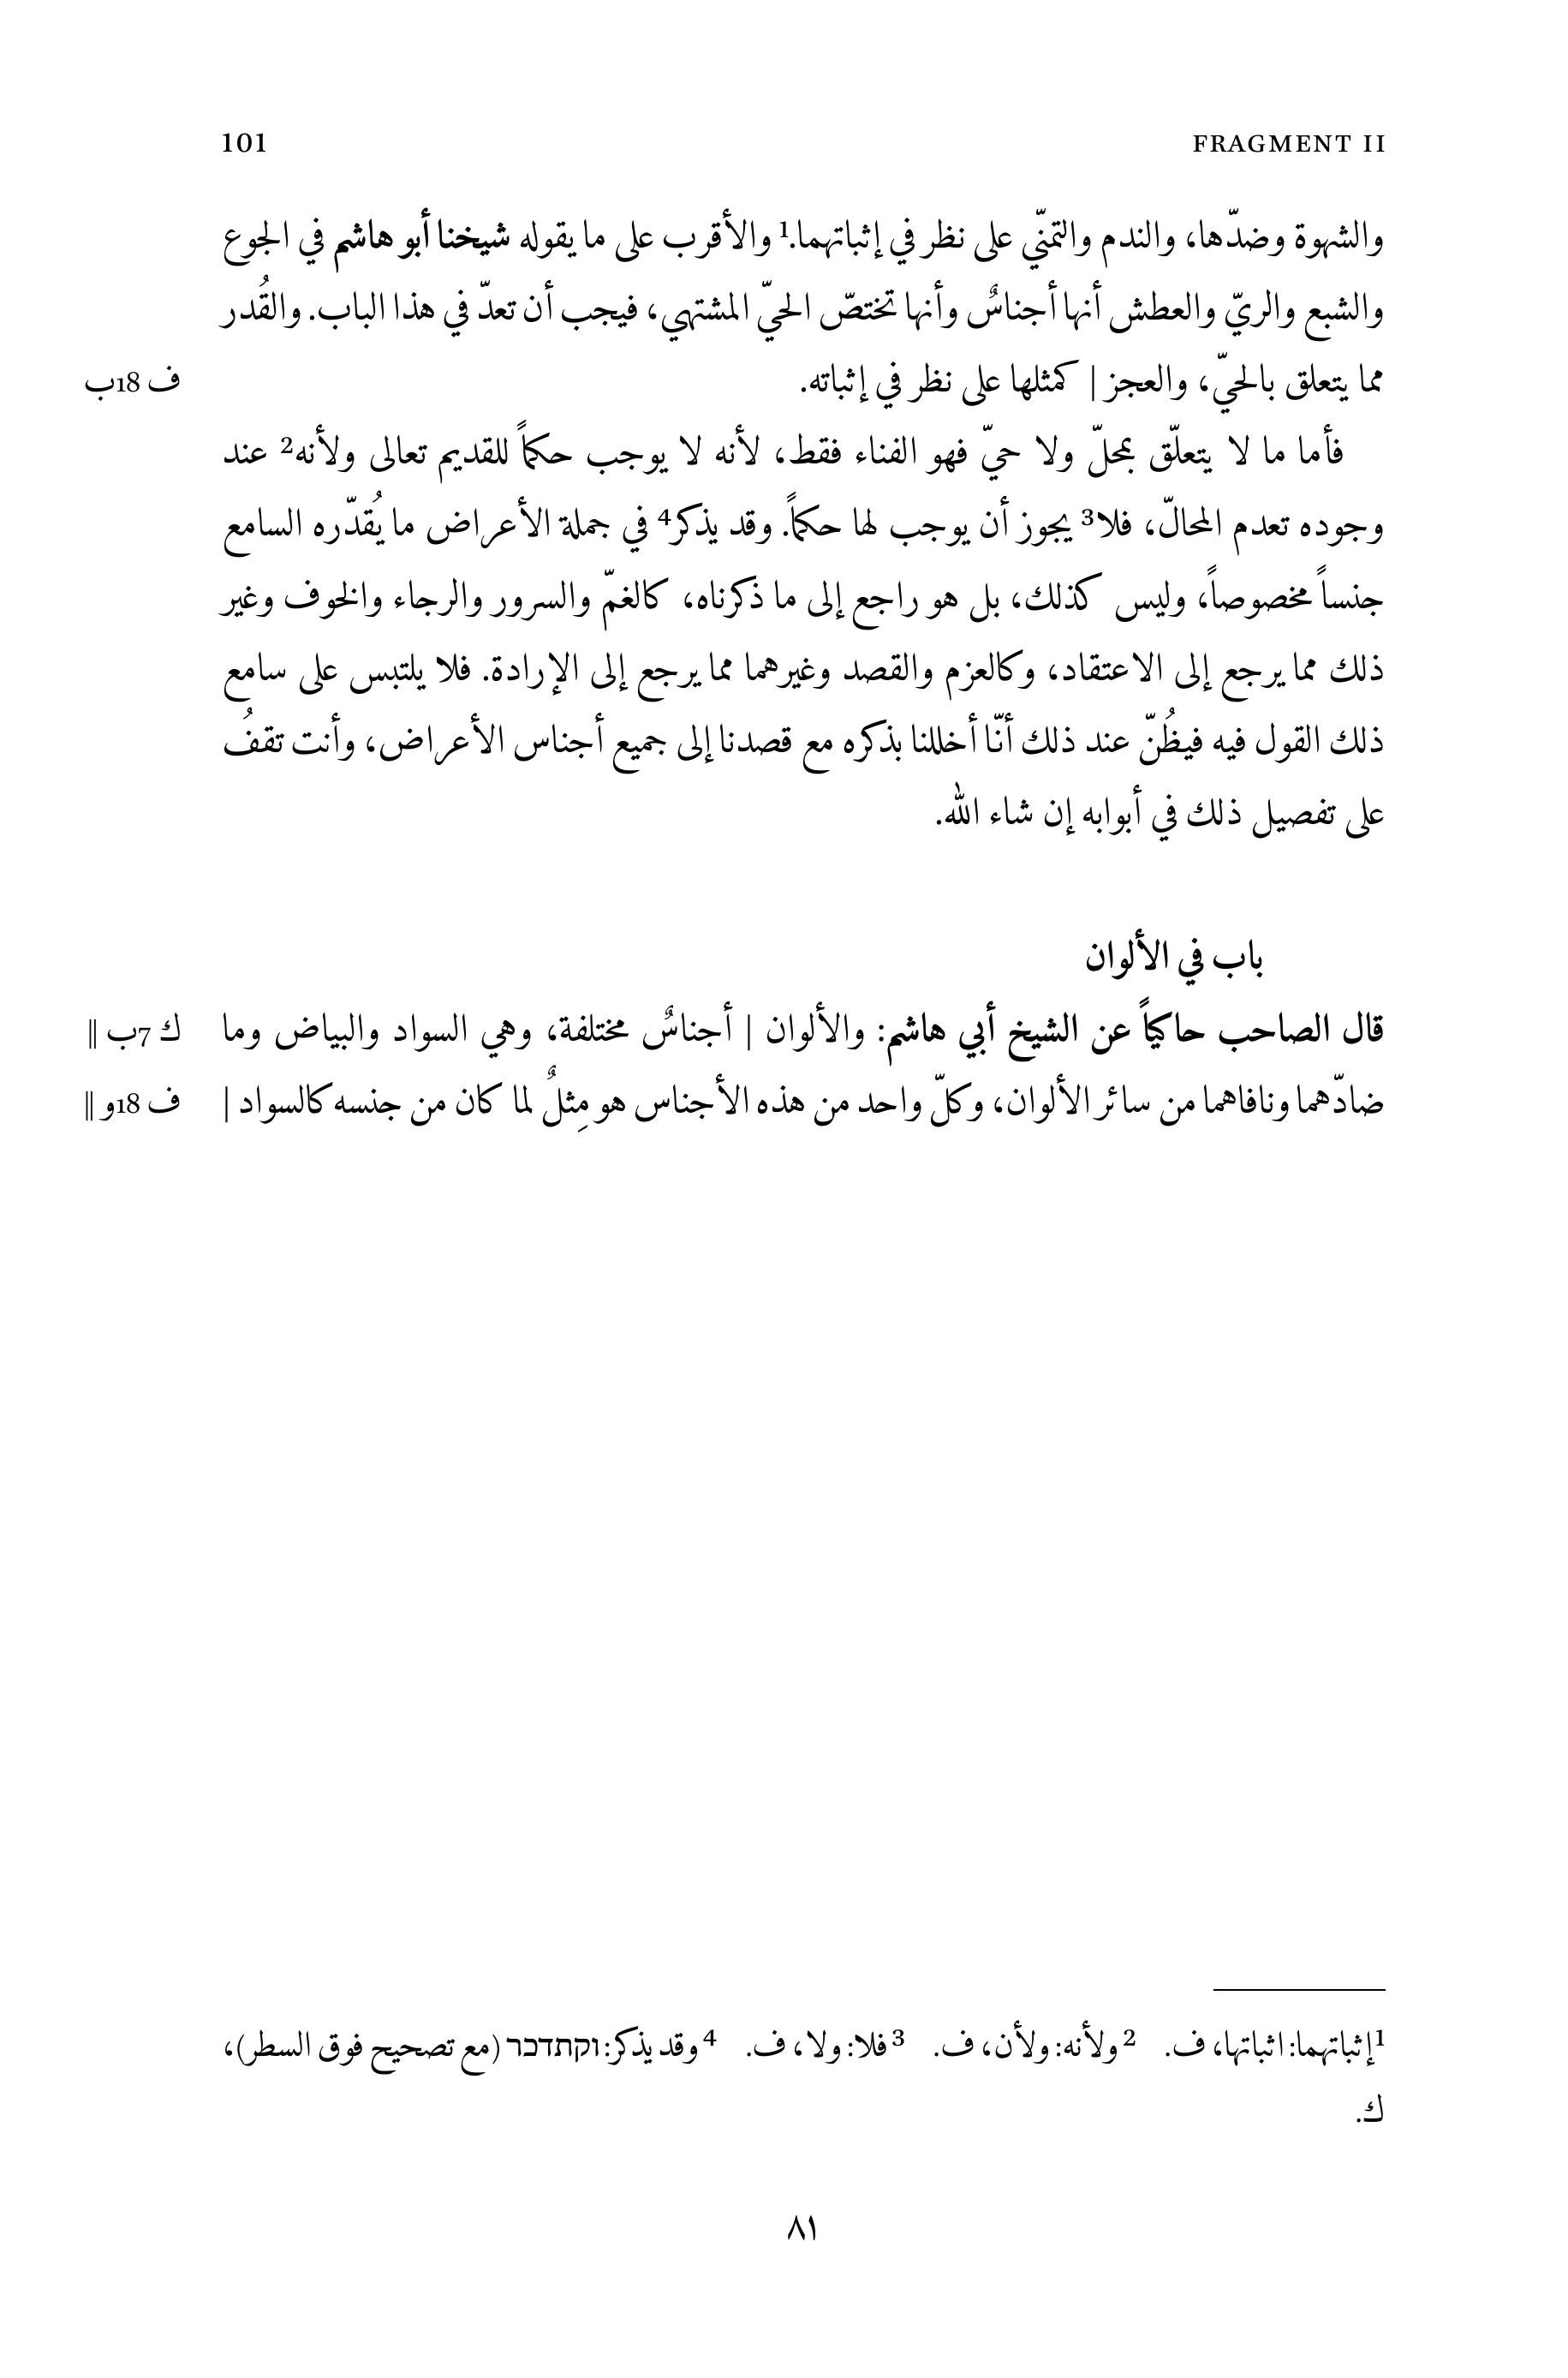 101 FRAGMENT II
والشهوة وضدّها، والندم والتمنّي على نظر في إثباتهما.1 والأقرب على ما يقوله شيخنا أبو هاشم في الجوع
والشبع والريّ والعطش أنها أجناسٌ وأنها تختصّ الحيّ المشتهي، فيجب أن تعدّ في هذا الباب. والقُدر
مما يتعلق بالحيّ، والعجز | كمثلها على نظر في إثباته. ف 18ب
فأما ما لا يتعلّق بمحلّ ولا حيّ فهو الفناء فقط، لأنه لا يوجب حكماً للقديم تعالى ولأنه2 عند
وجوده تعدم المحالّ، فلا3 يجوز أن يوجب لها حكماً. وقد يذكر4 في جملة الأعراض ما يُقدّره السامع
جنساً مخصوصاً، وليس كذلك، بل هو راجع إلى ما ذكرناه، كالغمّ والسرور والرجاء والخوف وغير
ذلك مما يرجع إلى الاعتقاد، وكالعزم والقصد وغيرهما مما يرجع إلى الإرادة. فلا يلتبس على سامع
ذلك القول فيه فيظُنّ عند ذلك أنّا أخللنا بذكره مع قصدنا إلى جميع أجناس الأعراض، وأنت تقفُ
على تفصيل ذلك في أبوابه إن شاء الله.
باب في الألوان
قال الصاحب حاكياً عن الشيخ أبي هاشم: والألوان | أجناسٌ مختلفة، وهي السواد والبياض وما ك 7ب ‖
ضادّهما ونافاهما من سائر الألوان، وكلّ واحد من هذه الأجناس هو مِثلٌ لما كان من جنسه كالسواد | ف 18و ‖
1 إثباتهما: اثباتها، ف. 2 ولأنه: ولأن، ف. 3 فلا: ولا، ف. 4 وقد يذكر: וקתדכר (مع تصحيح فوق السطر)،
ك.
٨١